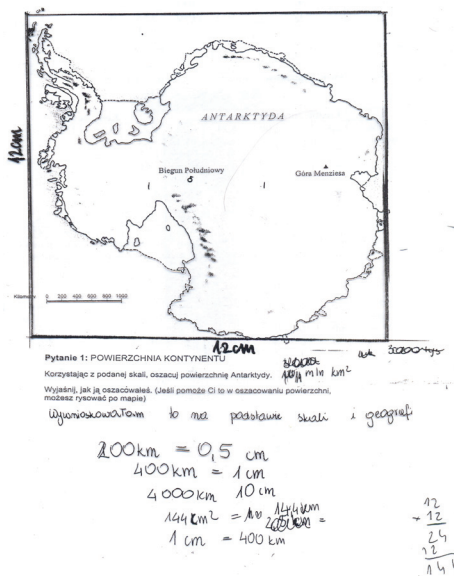 ANTARKTYDA
Biegun Południowy
Góra Menziesa
12cm
Kilometry 0 200 400 600 800 1000
12cm
Pytanie 1: POWIERZCHNIA KONTYNENTU
mln km²
Korzystając z podanej skali, oszacuj powierzchnię Antarktydy.
Wyjaśnij, jak ją oszacowałeś. (Jeśli pomoże Ci to w oszacowaniu powierzchni,
możesz rysować po mapie)
Wywnioskowałam to na podstawie skali i geografi
200km = 0,5 cm
400km = 1cm
4000km 10cm
144cm² =
1cm = 400km
12
× 12
24
12
144